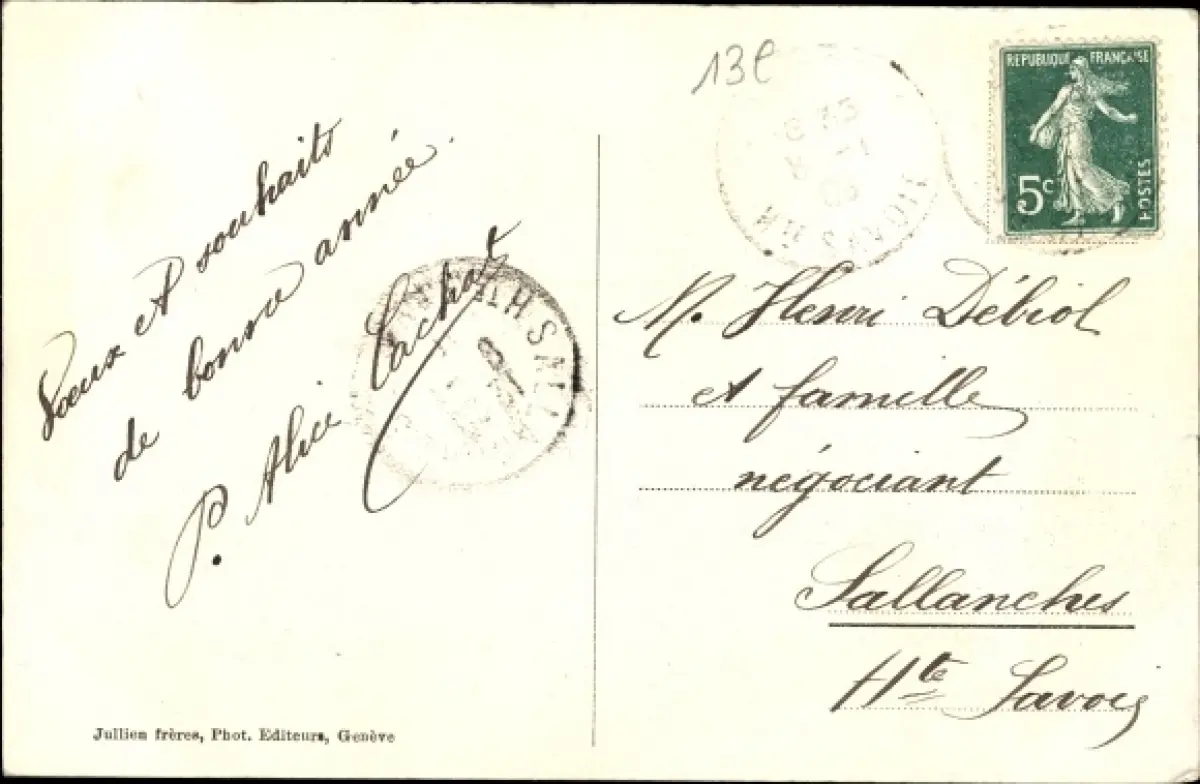 Voeux et souhaits
de bonne année.
P. Alice Cachat
Jullien frères, Phot. Editeurs, Genève
13e
REPUBLIQUE FRANÇAISE
5c
POSTES
Hte SAVOIE
Hte SAV
M. Henri Débiol
et famille
négociant
Sallanches
Hte Savoie